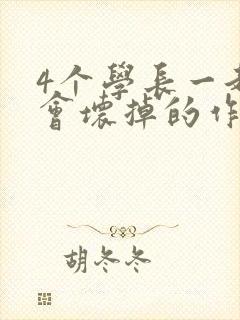 4个學長一
會壞掉的作
胡冬冬